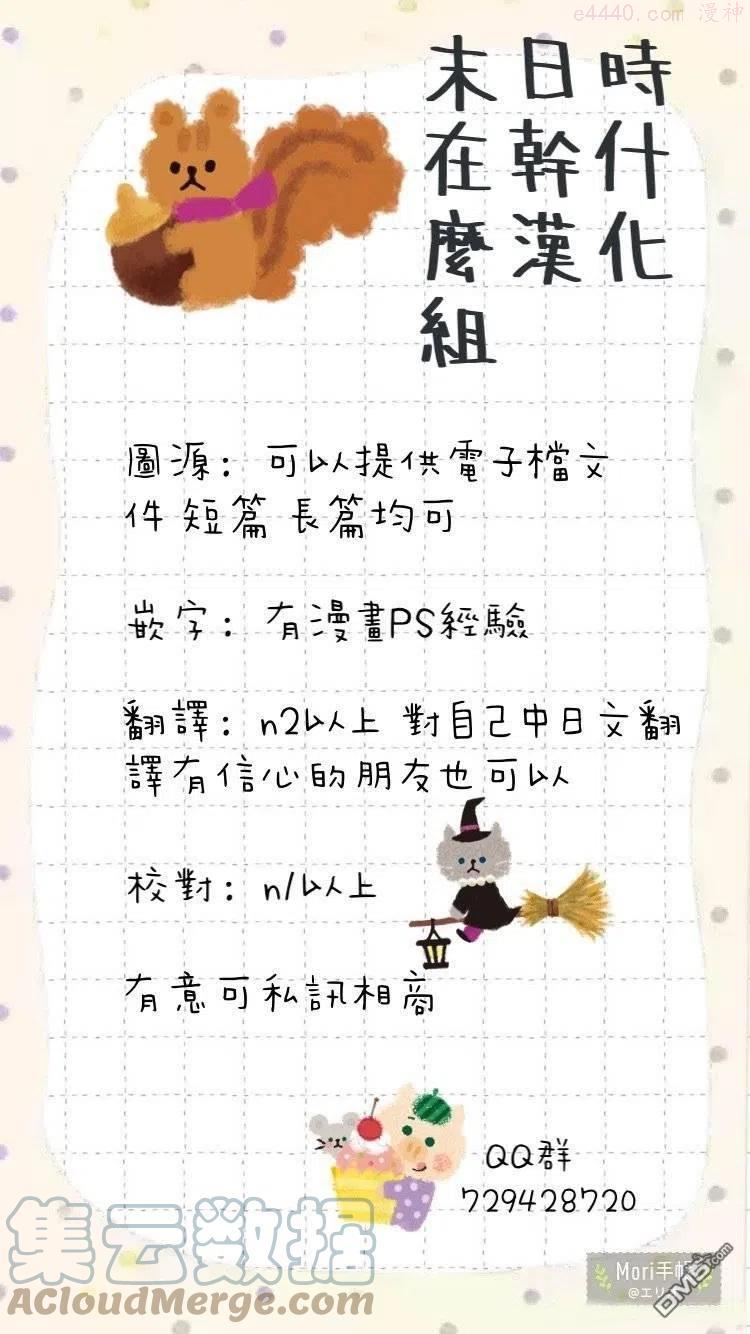 e4440.com 漫神
末日時
在幹什
麼漢化
組
圖源：可以提供電子檔文
件 短篇 長篇均可
嵌字：有漫畫PS經驗
翻譯：n2以上 對自己中日文翻
譯有信心的朋友也可以
校對：n1以上
有意可私訊相商
QQ群
729428720
集云数据
ACloudMerge.com
Mori手帳
@エリ
DM5.com